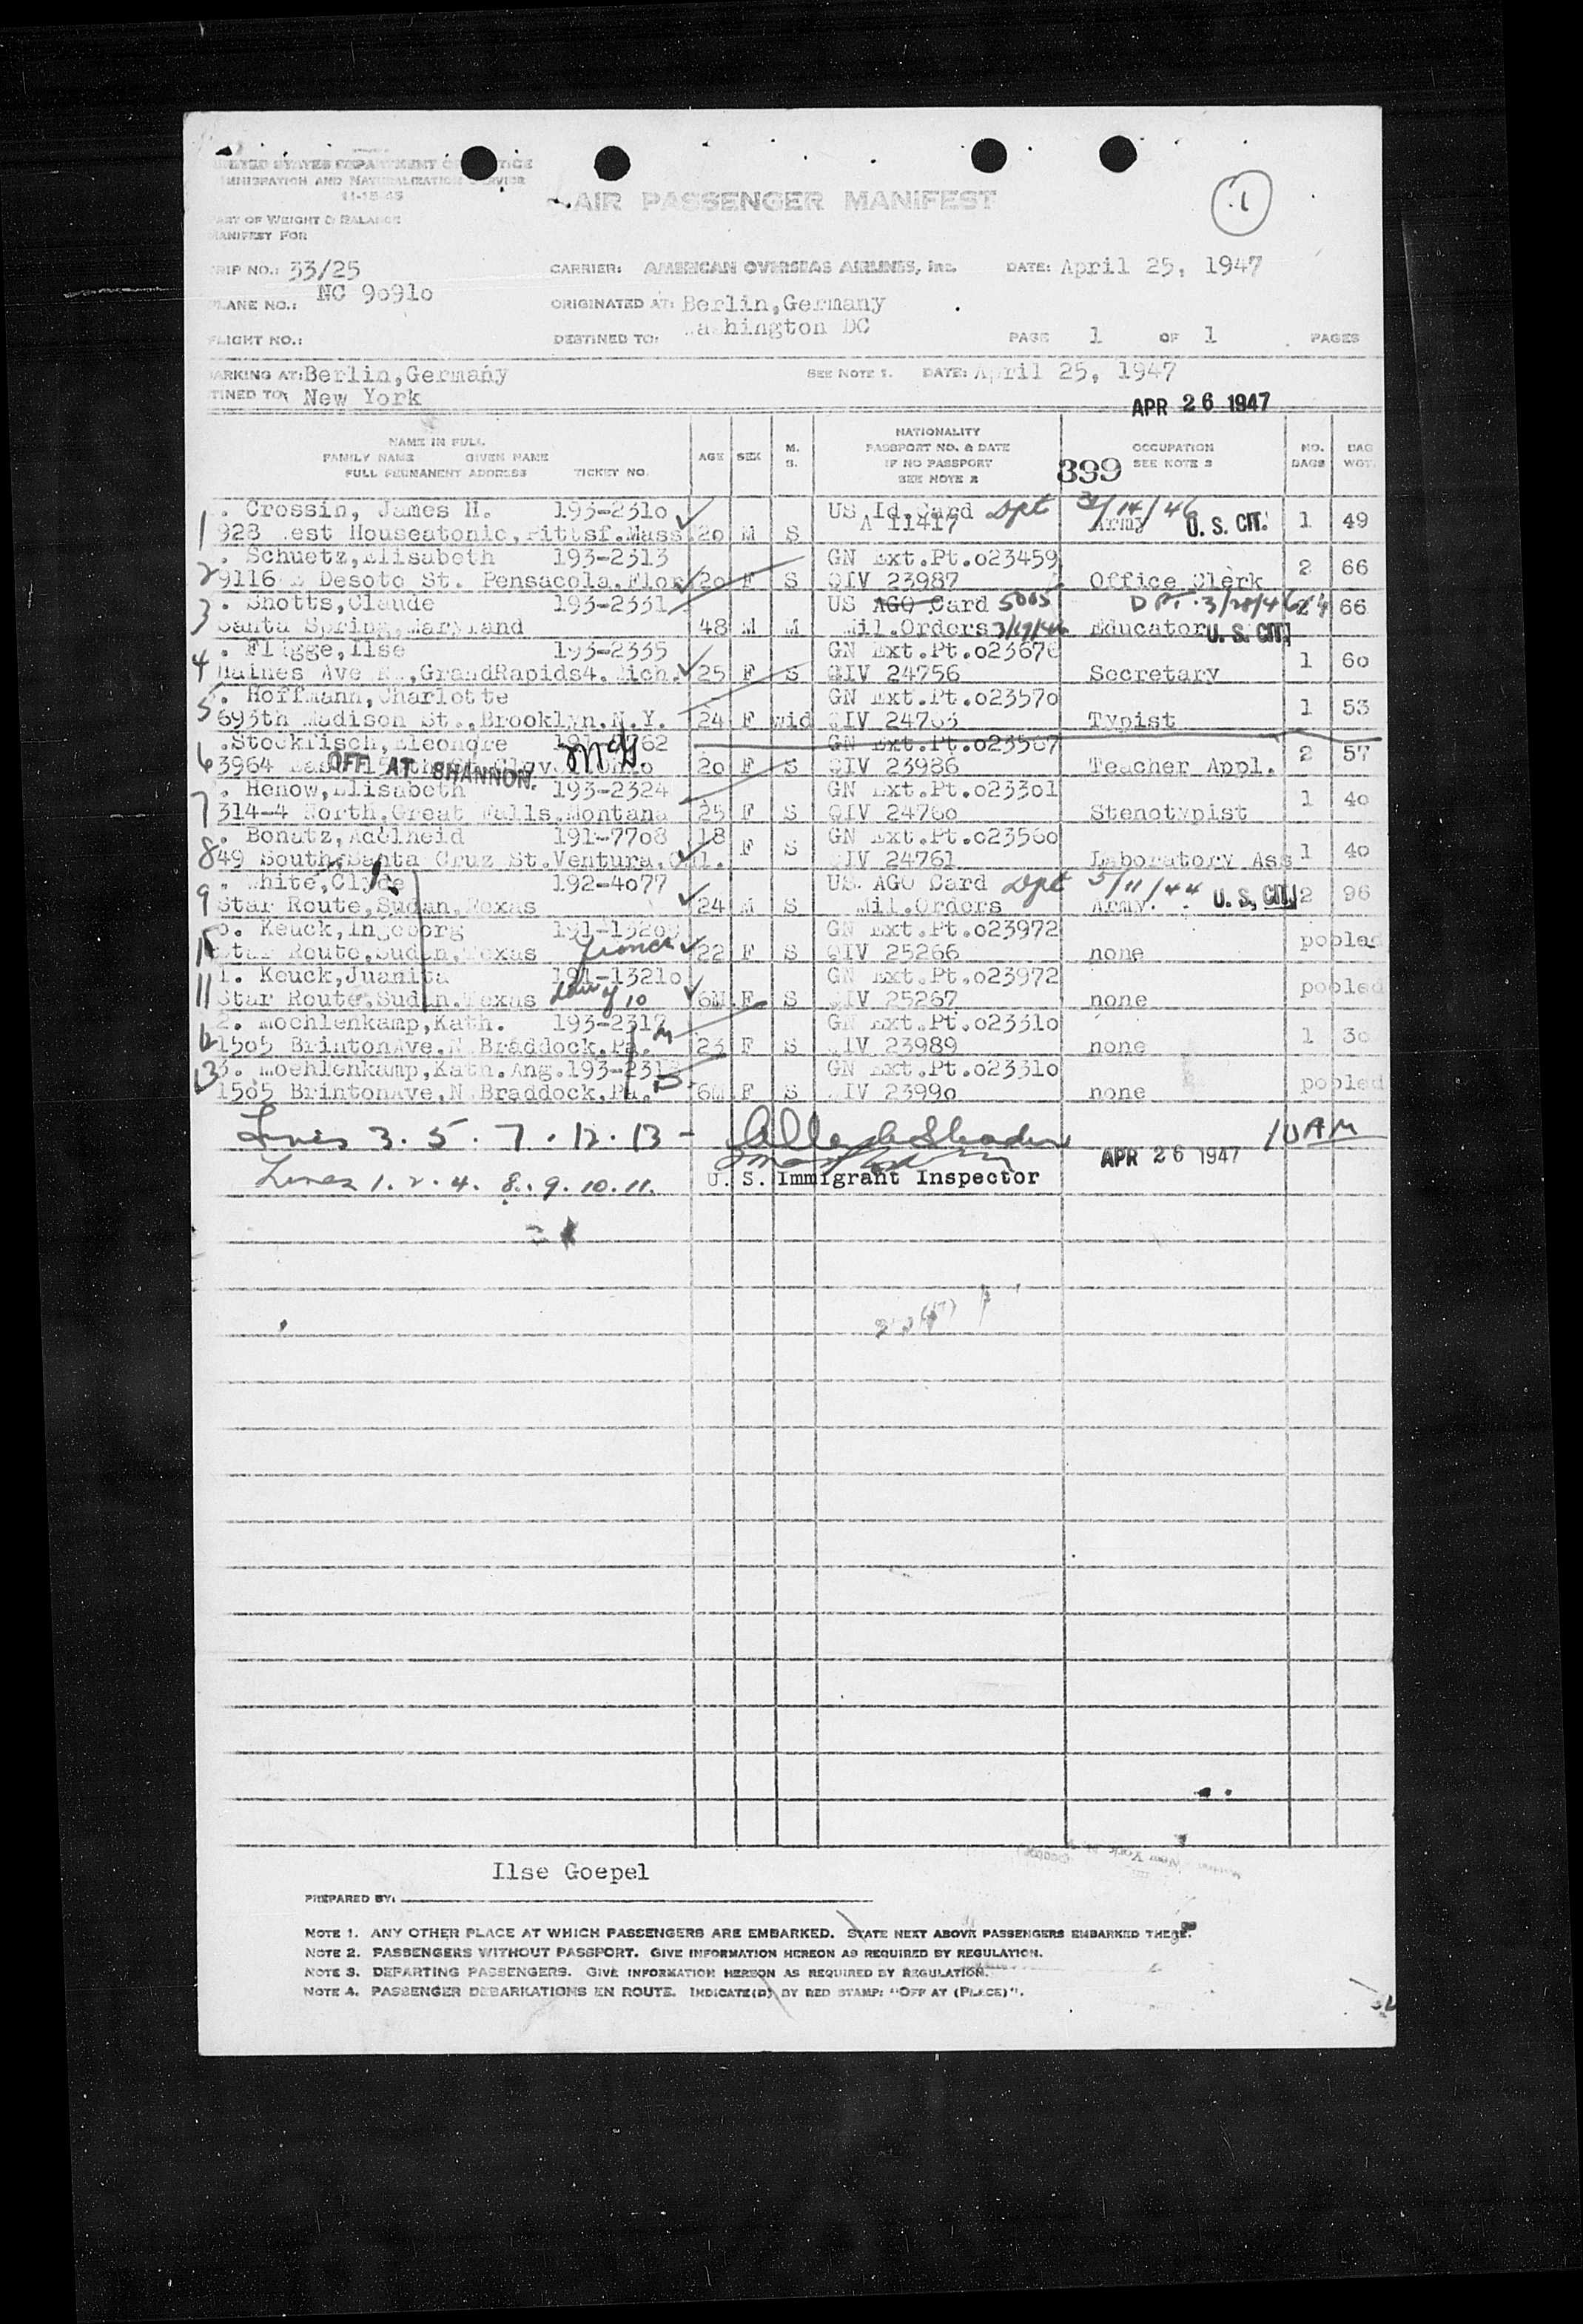 UNITED STATES DEPARTMENT OF JUSTICE
IMMIGRATION AND NATURALIZATION SERVICE
11-15-45
AIR PASSENGER MANIFEST
1
PART OF WEIGHT & BALANCE
MANIFEST FOR
TRIP NO.: 33/25 CARRIER: AMERICAN OVERSEAS AIRLINES, Inc. DATE: April 25, 1947
PLANE NO.: NC 9o91o ORIGINATED AT: Berlin,Germany
FLIGHT NO.: DESTINED TO: Washington DC PAGE 1 OF 1 PAGES
ARKING AT: Berlin,Germany SEE NOTE 1. DATE: April 25, 1947
TINED TO: New York
APR 26 1947
NAME IN FULL
FAMILY NAME GIVEN NAME
FULL PERMANENT ADDRESS TICKET NO. AGE SEX M. S. NATIONALITY PASSPORT NO. & DATE IF NO PASSPORT SEE NOTE 2 OCCUPATION SEE NOTE 3 NO. BAGS BAG WGT.
399
1 . Crossin, James H. 193-231o US Id.Card Dpt 3/14/46
928 West Houseatonic,Pittsf.Mass. 2o M S A 11417 Army U. S. CIT. 1 49
2 . Schuetz,Elisabeth 193-2313 GN Ext.Pt.o23459
9116 E Desoto St. Pensacola,Flor 2o F S QIV 23987 Office Clerk 2 66
3 . Shotts,Claude 193-2331 US AGO Card 5005 DPT. 3/28/46
Santa Spring,Maryland 48 M M Mil.Orders 3/19/46 Educator U. S. CIT. 66
4 . Flügge,Ilse 193-2335 GN Ext.Pt.o23676
Haines Ave ,GrandRapids4.Mich. 25 F S QIV 24756 Secretary 1 6o
5 . Hoffmann,Charlotte GN Ext.Pt.o2357o
693th Madison St.,Brooklyn.N.Y. 24 F wid QIV 24763 Typist 1 53
6 .Stockfisch,Eleonore GN Ext.Pt.o23567
3964 East OFF AT SHANNON. Ohio 2o F S QIV 23986 Teacher Appl. 2 57
7 . Henow,Elisabeth 193-2324 GN Ext.Pt.o233o1
314-4 North,Great Falls,Montana 25 F S QIV 2476o Stenotypist 1 4o
8 . Bonatz,Adelheid 191-77o8 18 GN Ext.Pt.o2356o
849 South,Santa Cruz St.Ventura,Cal. F S QIV 24761 Laboratory Ass 1 4o
9 . White,Clyde 192-4o77 US AGO Card Dpt 5/11/44
Star Route,Sudan,Texas 24 M S Mil.Orders Army. U. S. CIT. 2 96
10 o. Keuck,Ingeborg 191-132o9 GN Ext.Pt.o23972
Star Route,Sudan,Texas fiance 22 F S QIV 25266 none pooled
11 1. Keuck,Juanita 191-1321o GN Ext.Pt.o23972
Star Route,Sudan.Texas dau of 10 6M F S QIV 25267 none pooled
12 2. Moehlenkamp,Kath. 193-2317 GN Ext.Pt.o2331o
15o5 BrintonAve.N.Braddock,Pa. M 23 F S QIV 23989 none 1 3o
13 3. Moehlenkamp,Kath.Ang.193-231 GN Ext.Pt.o2331o
15o5 BrintonAve,N.Braddock,Pa. D 6M F S QIV 2399o none pooled
Lines 3. 5. 7. 12. 13 - 10 AM
APR 26 1947
Lines 1. 2. 4. 8. 9. 10. 11. U. S. Immigrant Inspector
Ilse Goepel
PREPARED BY:
NOTE 1. ANY OTHER PLACE AT WHICH PASSENGERS ARE EMBARKED. STATE NEXT ABOVE PASSENGERS EMBARKED THERE.
NOTE 2. PASSENGERS WITHOUT PASSPORT. GIVE INFORMATION HEREON AS REQUIRED BY REGULATION.
NOTE 3. DEPARTING PASSENGERS. GIVE INFORMATION HEREON AS REQUIRED BY REGULATION.
NOTE 4. PASSENGER DEBARKATIONS EN ROUTE. INDICATE(D) BY RED STAMP: "OFF AT (PLACE)".